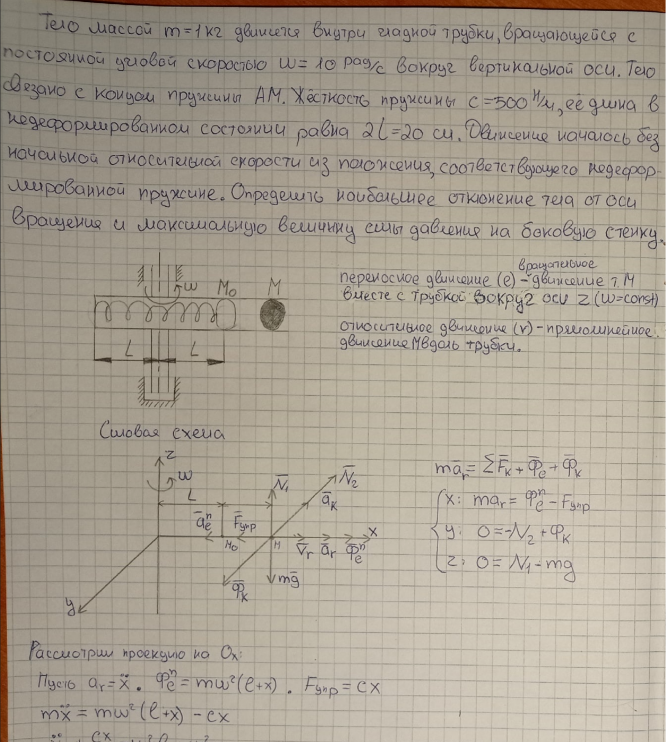 Тело массой m=1кг движется внутри гладкой трубки, вращающейся с
постоянной угловой скоростью ω=10 рад/с вокруг вертикальной оси. Тело
связано с концом пружины AM. Жёсткость пружины c=500 Н/м, её длина в
недеформированном состоянии равна 2L=20 см. Движение началось без
начальной относительной скорости из положения, соответствующего недефор-
мированной пружине. Определить наибольшее отклонение тела от оси
вращения и максимальную величину силы давления на боковую стенку.
ω M₀ M
L L
переносное движение (e) - вращательное движение т. M
вместе с трубкой вокруг оси z (ω=const)
относительное движение (r) - прямолинейное
движение M вдоль трубки.
Силовая схема
z
ω
L
N̄₁ N̄₂
āₑⁿ F̄упр āₖ
M₀ M v̄ᵣ āᵣ Φ̄ₑⁿ x
Φ̄ₖ mḡ
y
māᵣ = ΣF̄ₖ + Φ̄ₑ + Φ̄ₖ
x: maᵣ = Φₑⁿ - Fупр
y: 0 = -N₂ + Φₖ
z: 0 = N₁ - mg
Рассмотрим проекцию на Ox:
Пусть aᵣ = ẍ. Φₑⁿ = mω²(l+x). Fупр = cx
mẍ = mω²(l+x) - cx